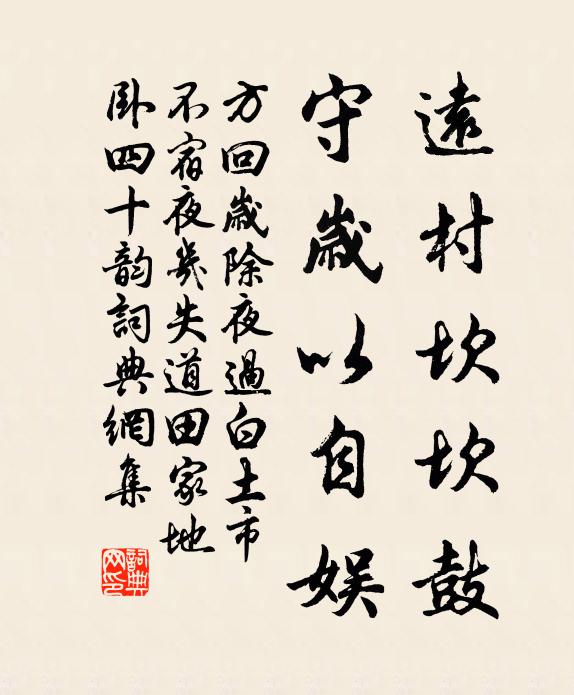 遠村坎坎鼓
守歲以自娱
方回歲除夜過白土市
不宿夜幾失道田家地
卧四十韵詞典網集
詞典网印